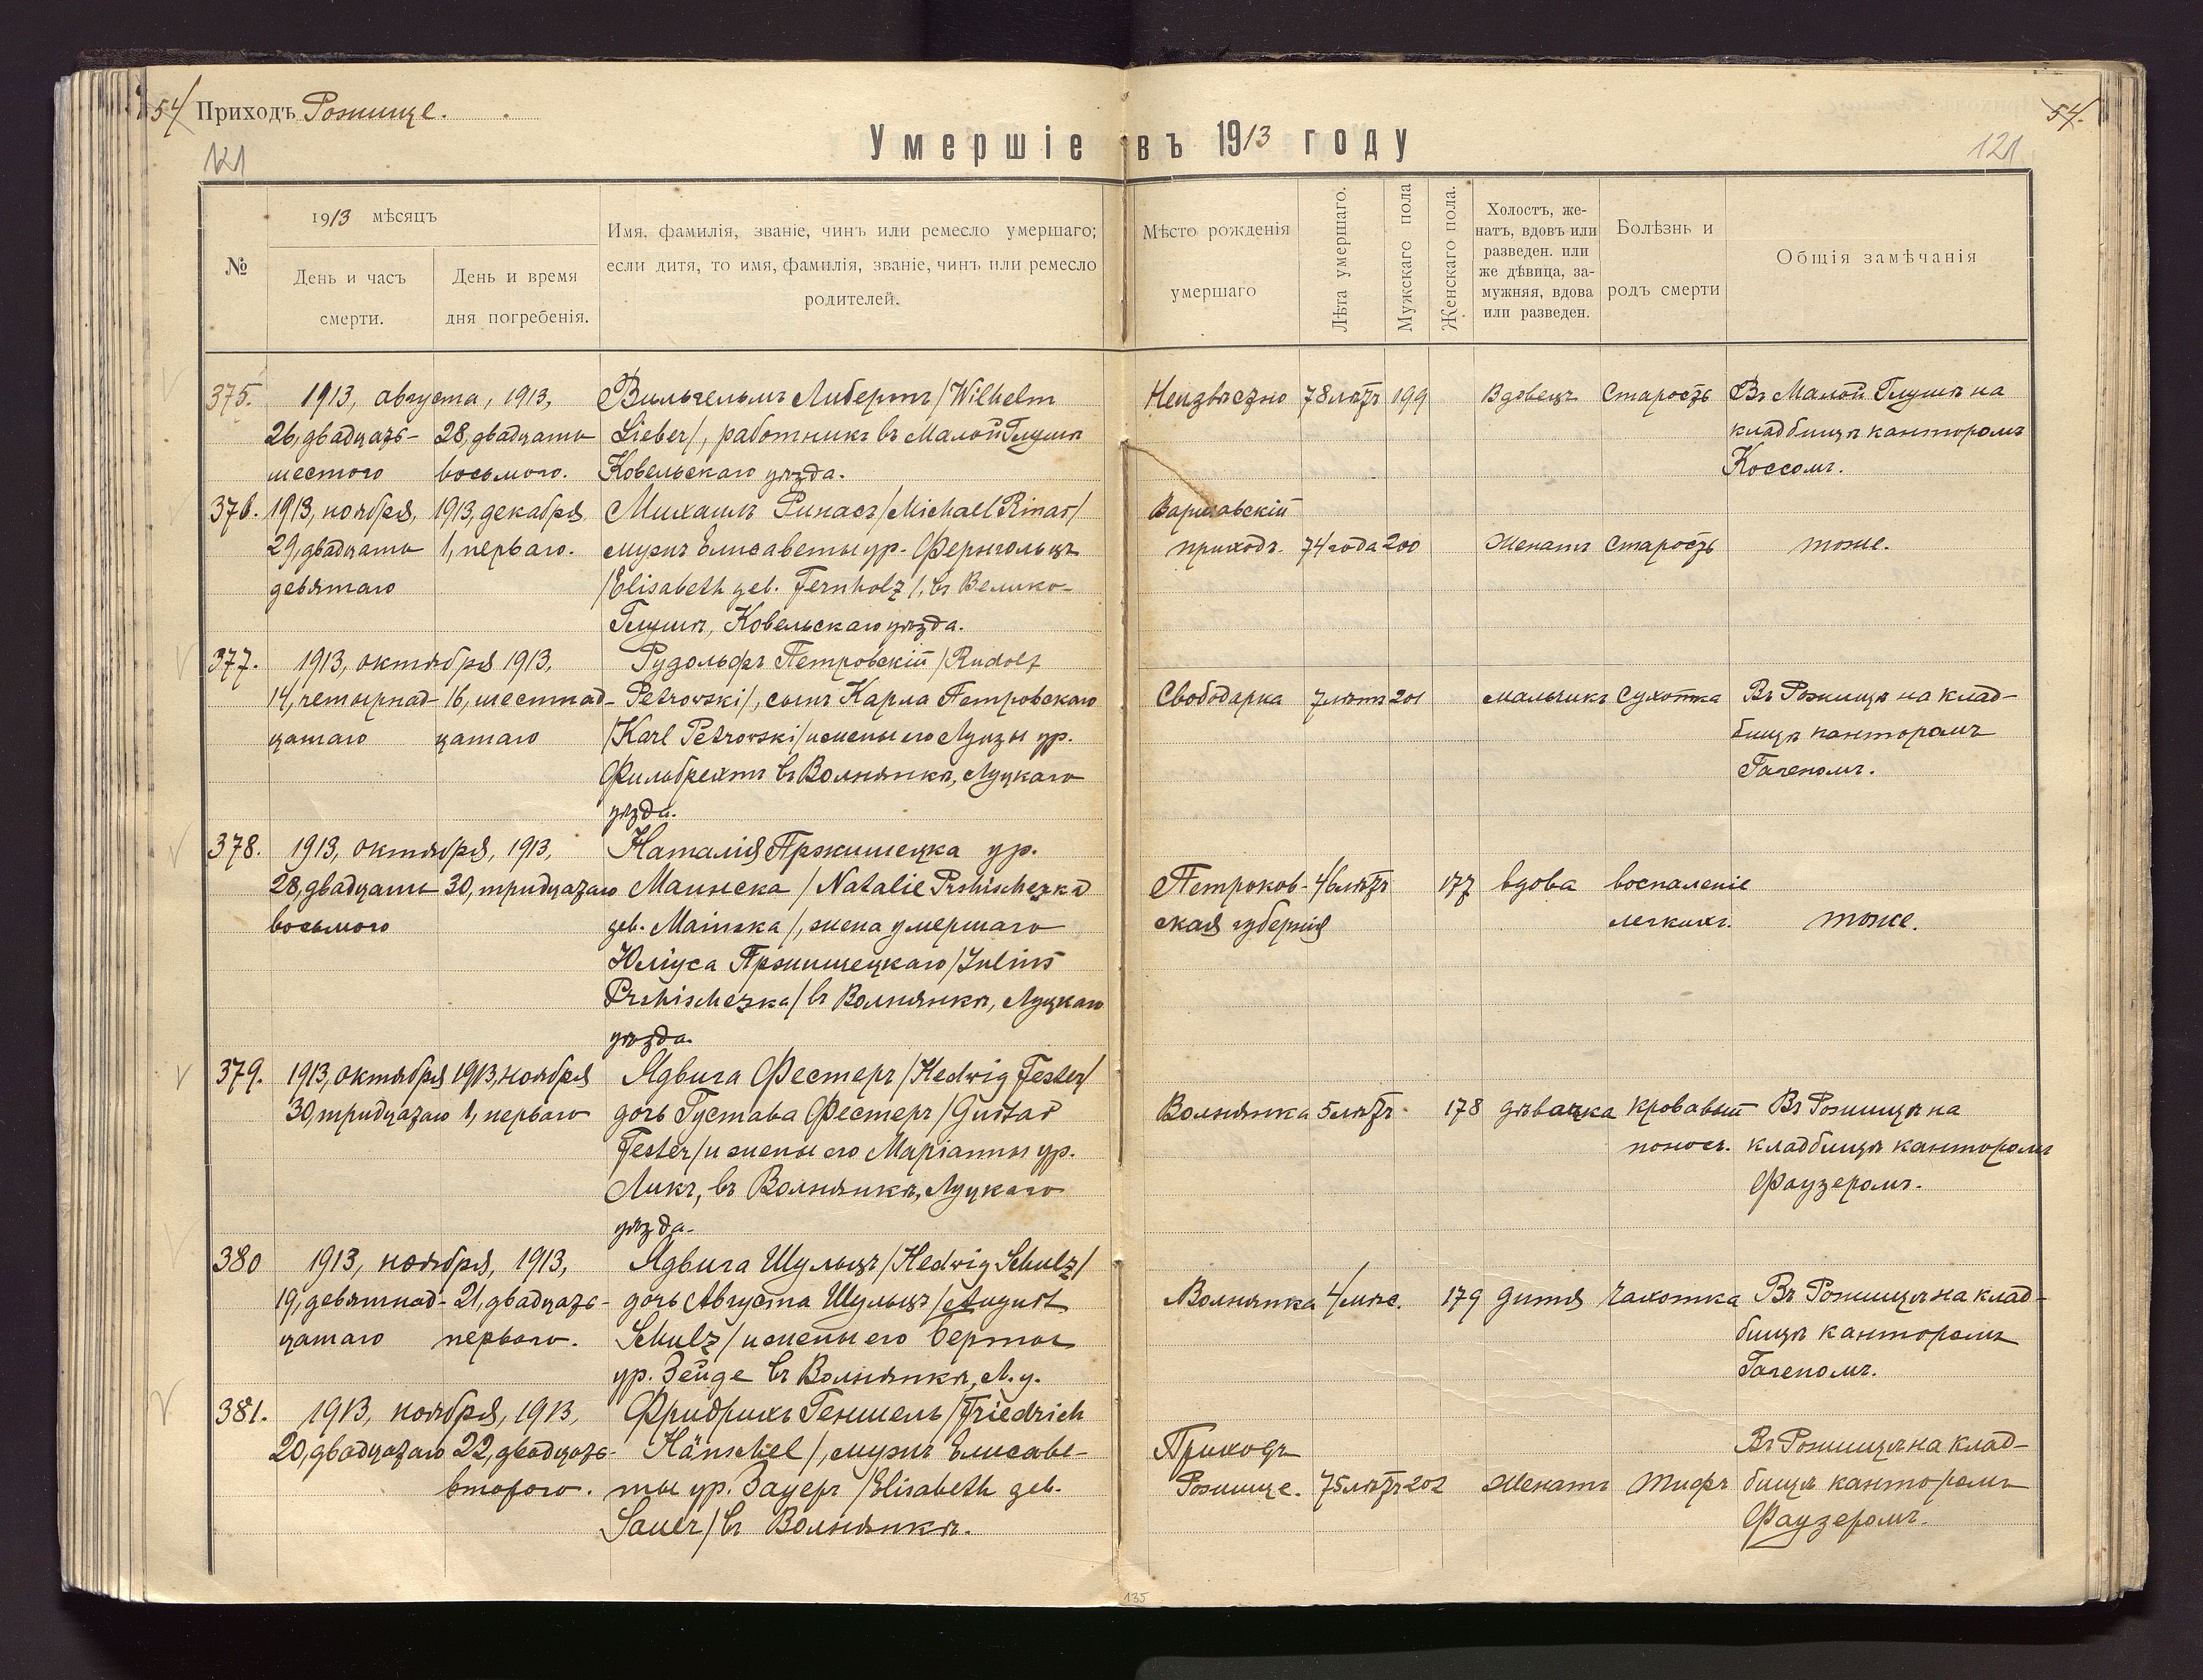 54 Приходъ Рожище. 54.
121 Умершіе въ 1913 году 121
№
1913 мѣсяцъ
День и часъ
смерти.
День и время
дня погребенія.
Имя, фамилія, званіе, чинъ или ремесло умершаго;
если дитя, то имя, фамилія, званіе, чинъ или ремесло
родителей.
Мѣсто рожденія
умершаго
Лѣта умершаго.
Мужскаго пола
Женскаго пола.
Холостъ, же-
натъ, вдовъ или
разведен. или
же дѣвица, за-
мужняя, вдова
или разведен.
Болѣзнь и
родъ смерти
Общія замѣчанія
375. 1913, августа, 1913, Вильгельмъ Либертъ /Wilhelm Неизвѣстно 78 лѣтъ 199 Вдовецъ Старость Въ Малой Глушѣ на
26, двадцать- 28, двадцать Lieber/, работникъ въ Малой Глушѣ кладбищѣ канторомъ
шестого восьмого. Ковельскаго уѣзда. Коссомъ.
376. 1913, ноября, 1913, декабря Михаилъ Ринасъ /Michael Rinas/ Варшавскій
29, двадцать 1, перваго. мужъ Елисаветы ур. Фернгольцъ приходъ. 74 года 200 Женатъ Старость тоже.
девятаго /Elisabeth geb. Fernholz/, въ Велико-
Глушѣ, Ковельскаго уѣзда.
377. 1913, октября 1913, Рудольфъ Петровскій /Rudolf
14, четырнад- 16, шестнад- Petrowski/, сынъ Карла Петровскаго Свободарка 7 лѣтъ 201 мальчикъ Сухотка Въ Рожищѣ на клад-
цатаго цатаго /Karl Petrowski/ и жены его Луизы ур. бищѣ канторомъ
Фильбрехтъ въ Волнянкѣ, Луцкаго Тагеномъ.
уѣзда.
378. 1913, октября, 1913, Наталія Пржишецка ур.
28, двадцать 30, тридцатаго Маинска /Natalie Prshischezka Петроков- 46 лѣтъ 177 вдова воспаленіе
восьмого geb. Mainska/, жена умершаго ская губернія легкихъ. тоже.
Юліуса Пржишецкаго /Julius
Prshischezka/ въ Волнянкѣ, Луцкаго
уѣзда.
379. 1913, октября 1913, ноября Ядвига Фестеръ /Hedwig Fester/
30, тридцатаго 1, перваго дочь Густава Фестеръ /Gustav Волнянка 5 лѣтъ. 178 дѣвачка кровавый Въ Рожищѣ на
Fester/ и жены его Маріанны ур. поносъ. кладбищѣ канторомъ
Ликъ, въ Волнянкѣ, Луцкаго Фаузеромъ.
уѣзда.
380 1913, ноября, 1913, Ядвига Шульцъ /Hedwig Schulz/
19, девятнад- 21, двадцать- дочь Августа Шульцъ /August Волнянка 4 мѣс. 179 дитя Чахотка Въ Рожищѣ на клад-
цатаго перваго. Schulz/ и жены его Берты бищѣ канторомъ
ур. Зейде въ Волнянкѣ, Л. у. Тагеномъ.
381. 1913, ноября, 1913, Фридрихъ Геншель /Friedrich
20, двадцатаго 22, двадцать- Hänschel/, мужъ Елисаве- Приходъ Въ Рожищѣ на клад-
второго. ты ур. Зауеръ /Elisabeth geb. Рожище. 75 лѣтъ 202 Женатъ Тифъ бищѣ канторомъ
Sauer/ въ Волнянкѣ. Фаузеромъ.
135